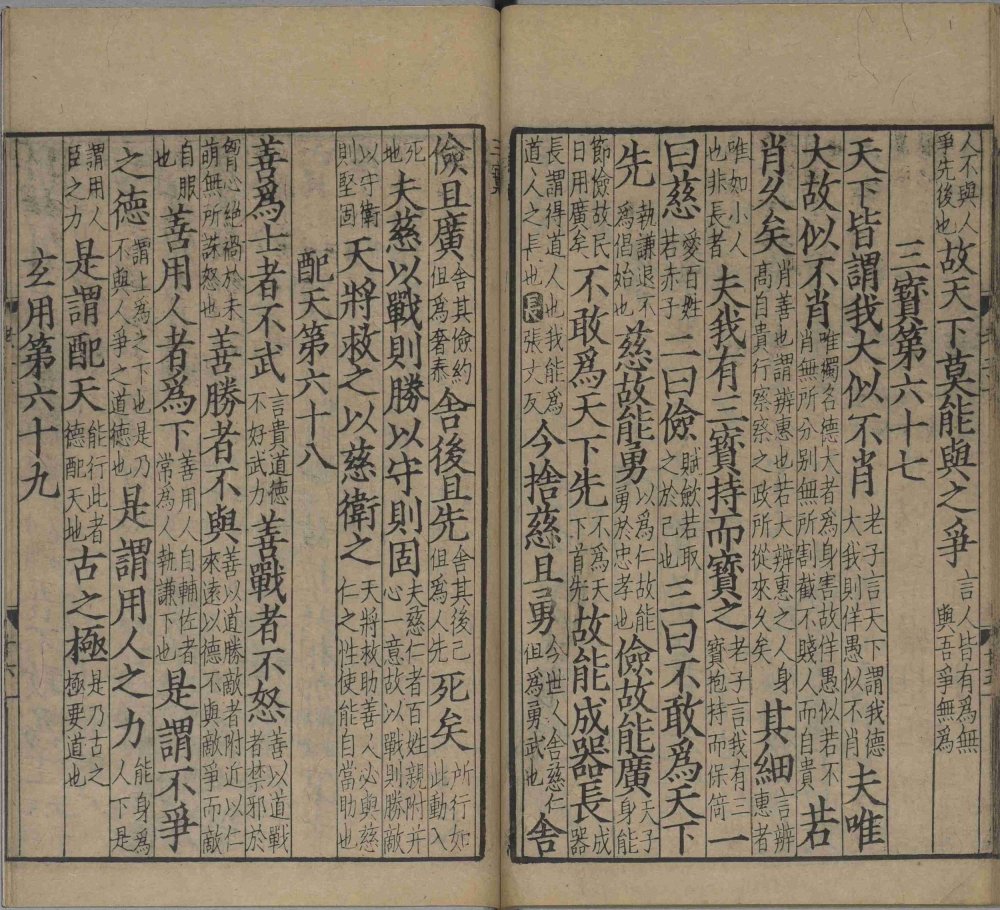 人不與人爭先後也故天下莫能與之爭言人皆有爲無與吾爭無爲
三寳第六十七
天下皆謂我大似不肖老子言天下謂我德大我則佯愚似不肖夫唯
大故似不肖唯獨名德大者爲身害故佯愚似若不肖無所分别無所割截不賤人而自貴若
肖久矣肖善也謂辨惠也若大辨惠之人身高自貴行察察之政所從來久矣其細言辨惠者
唯如小人也非長者夫我有三寳持而寳之老子言我有三寳抱持而保倚一
曰慈愛百姓若赤子二曰儉賦歛若取之於己也三曰不敢爲天下
先執謙退不爲倡始也慈故能勇以爲仁故能勇於忠孝也儉故能廣天子身能
節儉故民日用廣矣不敢爲天下先不爲天下首先故能成器長成器
長謂得道人也我能爲道人之長也長張丈反今捨慈且勇今世人舍慈仁但爲勇武也舍
儉且廣舍其儉約但爲奢泰舍後且先舍其後己但爲人先死矣所行如此動入
死地夫慈以戰則勝以守則固夫慈仁者百姓親附并心一意故以戰則勝敵
以守衛則堅固天將救之以慈衛之天將救助善人必與慈仁之性使能自當助也
配天第六十八
善爲士者不武言貴道德不好武力善戰者不怒善以道戰者禁邪於
胷心絶禍於未萌無所誅怒也善勝者不與善以道勝敵者附近以仁來遠以德不與敵爭而敵
自服也善用人者爲下善用人自輔佐者常爲人執謙下也是謂不爭
之德謂上爲之下也是乃不與人爭之道德也是謂用人之力能身爲人下是
謂用人臣之力是謂配天能行此者德配天地古之極是乃古之極要道也
玄用第六十九